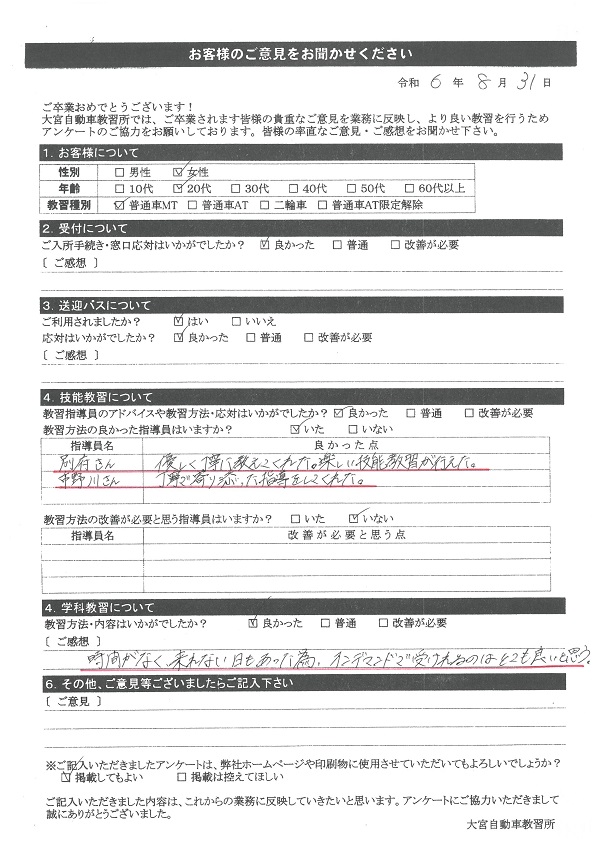 お客様のご意見をお聞かせください
令和 6 年 8 月 31 日
ご卒業おめでとうございます!
大宮自動車教習所では、ご卒業されます皆様の貴重なご意見を業務に反映し、より良い教習を行うため
アンケートのご協力をお願いしております。皆様の率直なご意見・ご感想をお聞かせ下さい。
1. お客様について
性別 □ 男性 ☑ 女性
年齢 □ 10代 ☑ 20代 □ 30代 □ 40代 □ 50代 □ 60代以上
教習種別 ☑ 普通車MT □ 普通車AT □ 二輪車 □ 普通車AT限定解除
2. 受付について
ご入所手続き・窓口応対はいかがでしたか? ☑ 良かった □ 普通 □ 改善が必要
〔 ご感想 〕
3. 送迎バスについて
ご利用されましたか? ☑ はい □ いいえ
応対はいかがでしたか? ☑ 良かった □ 普通 □ 改善が必要
〔 ご感想 〕
4. 技能教習について
教習指導員のアドバイスや教習方法・応対はいかがでしたか? ☑ 良かった □ 普通 □ 改善が必要
教習方法の良かった指導員はいますか? ☑ いた □ いない
指導員名 良かった点
別府さん 優しく丁寧に教えてくれた。楽しい技能教習が行えた。
市野川さん 丁寧で寄り添った指導をしてくれた。
教習方法の改善が必要と思う指導員はいますか? □ いた ☑ いない
指導員名 改善が必要と思う点
4. 学科教習について
教習方法・内容はいかがでしたか? ☑ 良かった □ 普通 □ 改善が必要
〔 ご感想 〕
時間がなく来れない日もあった為、オンデマンドで受けれるのはとても良いと思う。
6. その他、ご意見等ございましたらご記入下さい
〔 ご意見 〕
※ご記入いただきましたアンケートは、弊社ホームページや印刷物に使用させていただいてもよろしいでしょうか?
☑ 掲載してもよい □ 掲載は控えてほしい
ご記入いただきました内容は、これからの業務に反映していきたいと思います。アンケートにご協力いただきまして
誠にありがとうございました。
大宮自動車教習所